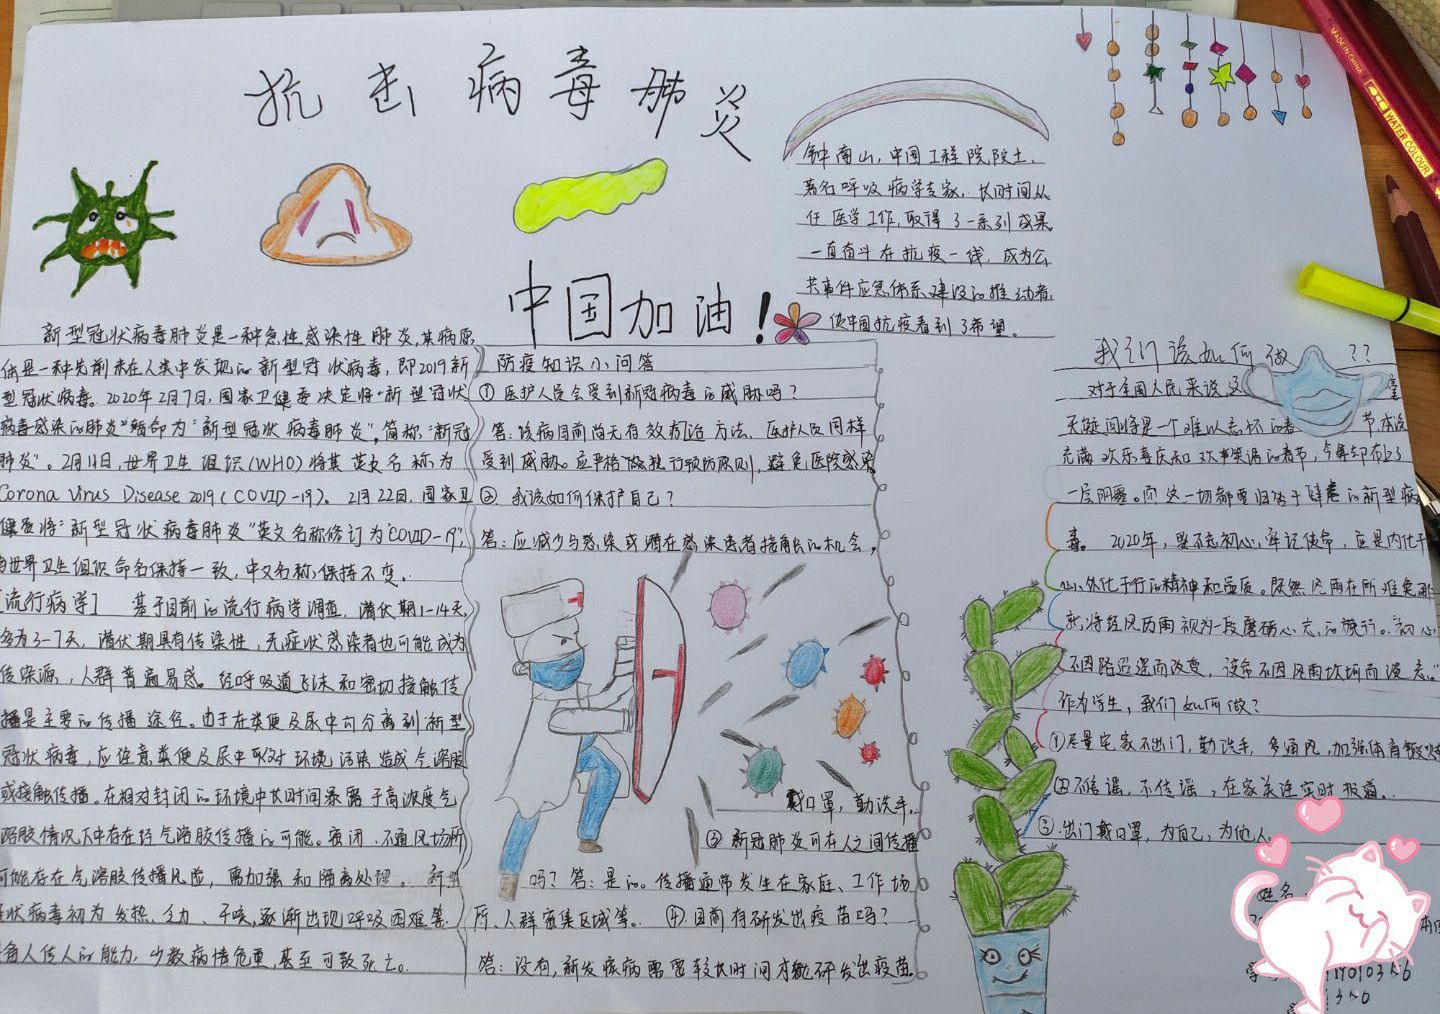 抗击病毒肺炎
钟南山，中国工程院院士、
著名呼吸病学专家，长时间从
任医学工作，取得了一系列成果
一直奋斗在抗疫一线，成为公
共事件应急体系建设的推动者，
使中国抗疫看到了希望。
中国加油！
新型冠状病毒肺炎是一种急性感染性肺炎，其病原
体是一种先前未在人类中发现的新型冠状病毒，即2019新
型冠状病毒。2020年2月7日，国家卫健委决定将“新型冠状
病毒感染的肺炎”暂命为“新型冠状病毒肺炎”，简称“新冠
肺炎”。2月11日，世界卫生组织(WHO)将其英文名称为
Corona Virus Disease 2019(COVID-19)。2月22日，国家卫
健委将“新型冠状病毒肺炎”英文名称修订为“COVID-19”，
与世界卫生组织命名保持一致，中文名称保持不变。
[流行病学] 基于目前的流行病学调查，潜伏期1-14天，
多为3-7天，潜伏期具有传染性，无症状感染者也可能成为
传染源，人群普遍易感。经呼吸道飞沫和密切接触传
播是主要的传播途径。由于在粪便及尿中可分离到新型
冠状病毒，应注意粪便及尿中取对环境污染造成气溶胶
或接触传播。在相对封闭的环境中长时间暴露于高浓度气
溶胶情况下中存在经气溶胶传播的可能。密闭、不通风场所
可能存在气溶胶传播风险，需加强和隔离处理。新型
冠状病毒初为发热、乏力、干咳，逐渐出现呼吸困难等
具有人传人的能力，少数病情危重，甚至可致死亡。
防疫知识小问答
①医护人员会受到新冠病毒的威胁吗？
答：该病目前尚无有效疗治方法，医护人员同样
受到威胁。应严格做执行预防原则，避免医院感染
②我该如何保护自己？
答：应减少与感染或潜在感染患者接触的机会，
戴口罩，勤洗手。
③新冠肺炎可在人之间传播
吗？答：是的。传播通常发生在家庭、工作场
所、人群密集区域等。④目前有研发出疫苗吗？
答：没有，新发疾病需要较长时间才能研发出疫苗。
我们该如何做？？
对于全国人民来说，这
无疑间将是一个难以忘怀的春节，本该
充满欢乐喜庆和欢声笑语的春节，今年却有上了
一层阴霾。而这一切都要归咎于肆虐的新型病
毒。2020年，要不忘初心，牢记使命，应是内化于
心，外化于行的精神和品质。既然风雨在所难免那
就将经风历雨视为一段磨砺心志的旅行。初心
不因路迢遥而改变，该命不因风雨坎坷而没忘。”
作为学生，我们如何做？
①尽量宅家不出门，勤洗手，多通风，加强体育锻炼
②不信谣，不传谣，在家关注实时报道。
③出门戴口罩，为自己，为他人
姓名